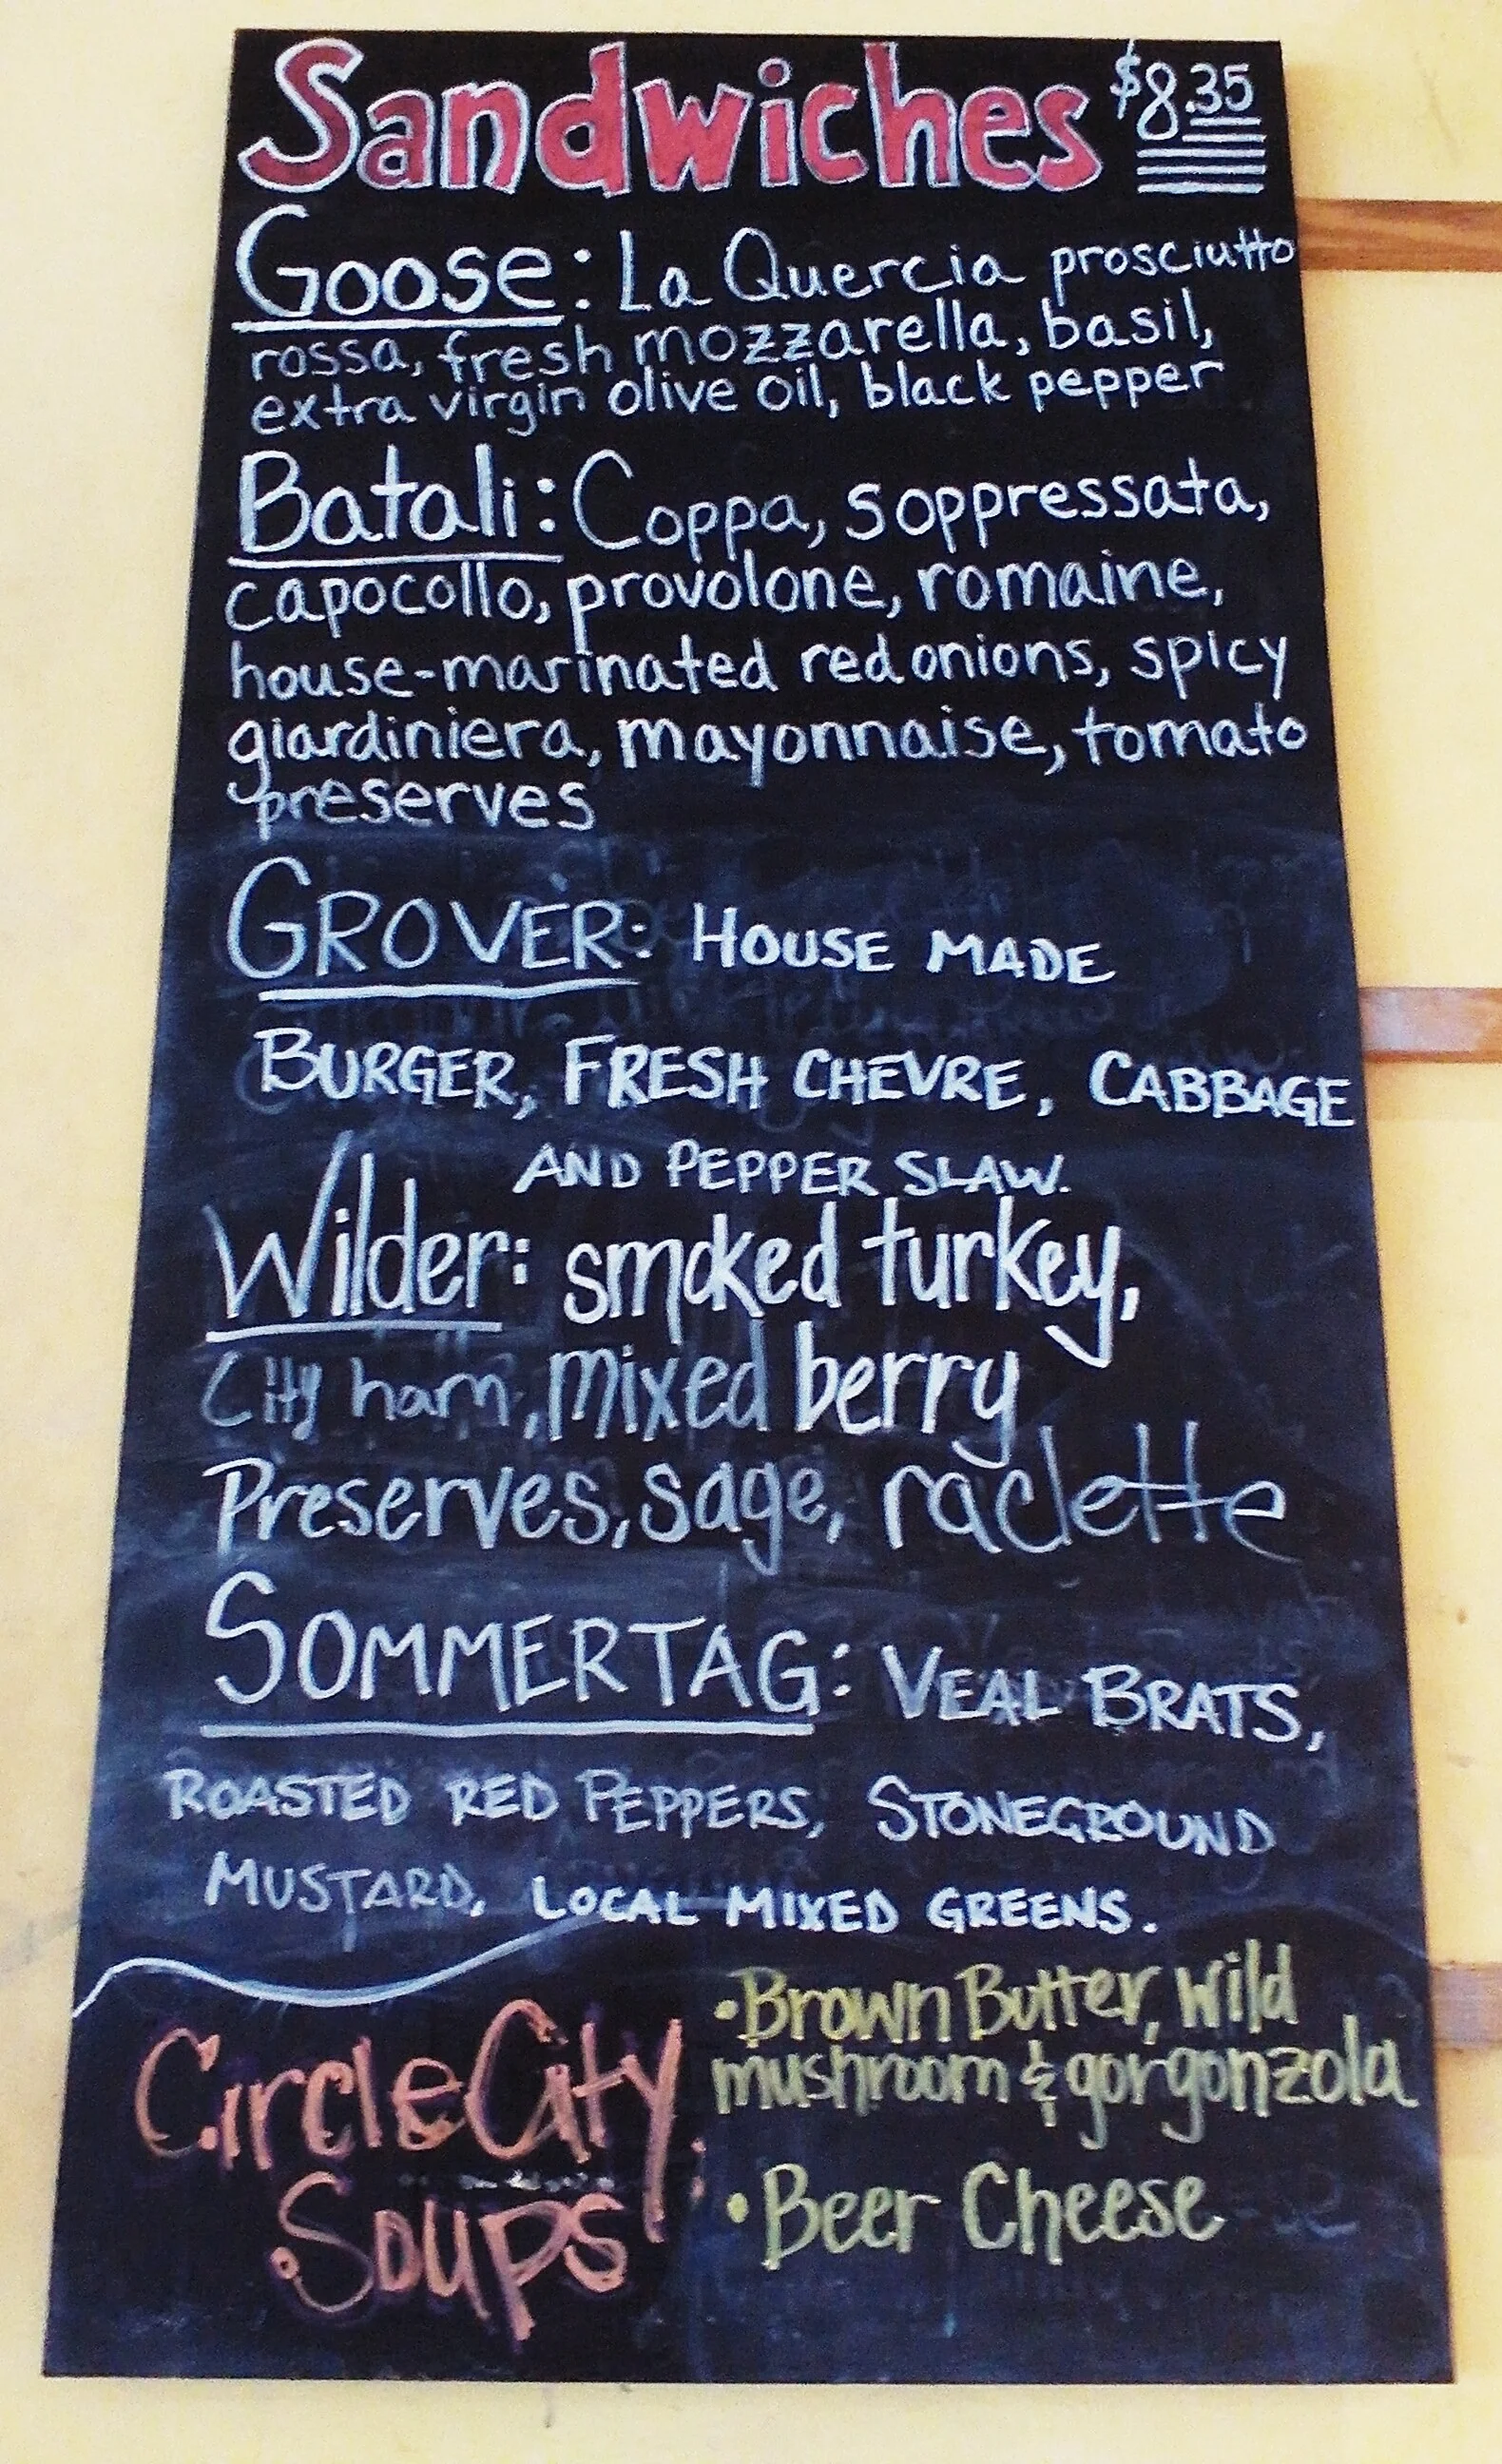 Sandwiches $8.35
Goose: La Quercia prosciutto
rossa, fresh mozzarella, basil,
extra virgin olive oil, black pepper
Batali: Coppa, soppressata,
capocollo, provolone, romaine,
house-marinated red onions, spicy
giardiniera, mayonnaise, tomato
preserves
GROVER: HOUSE MADE
BURGER, FRESH CHEVRE, CABBAGE
AND PEPPER SLAW.
Wilder: smoked turkey,
City ham, mixed berry
Preserves, sage, raclette
SOMMERTAG: VEAL BRATS,
ROASTED RED PEPPERS, STONEGROUND
MUSTARD, LOCAL MIXED GREENS.
Circle City
Soups:
• Brown Butter, wild
mushroom & gorgonzola
• Beer Cheese